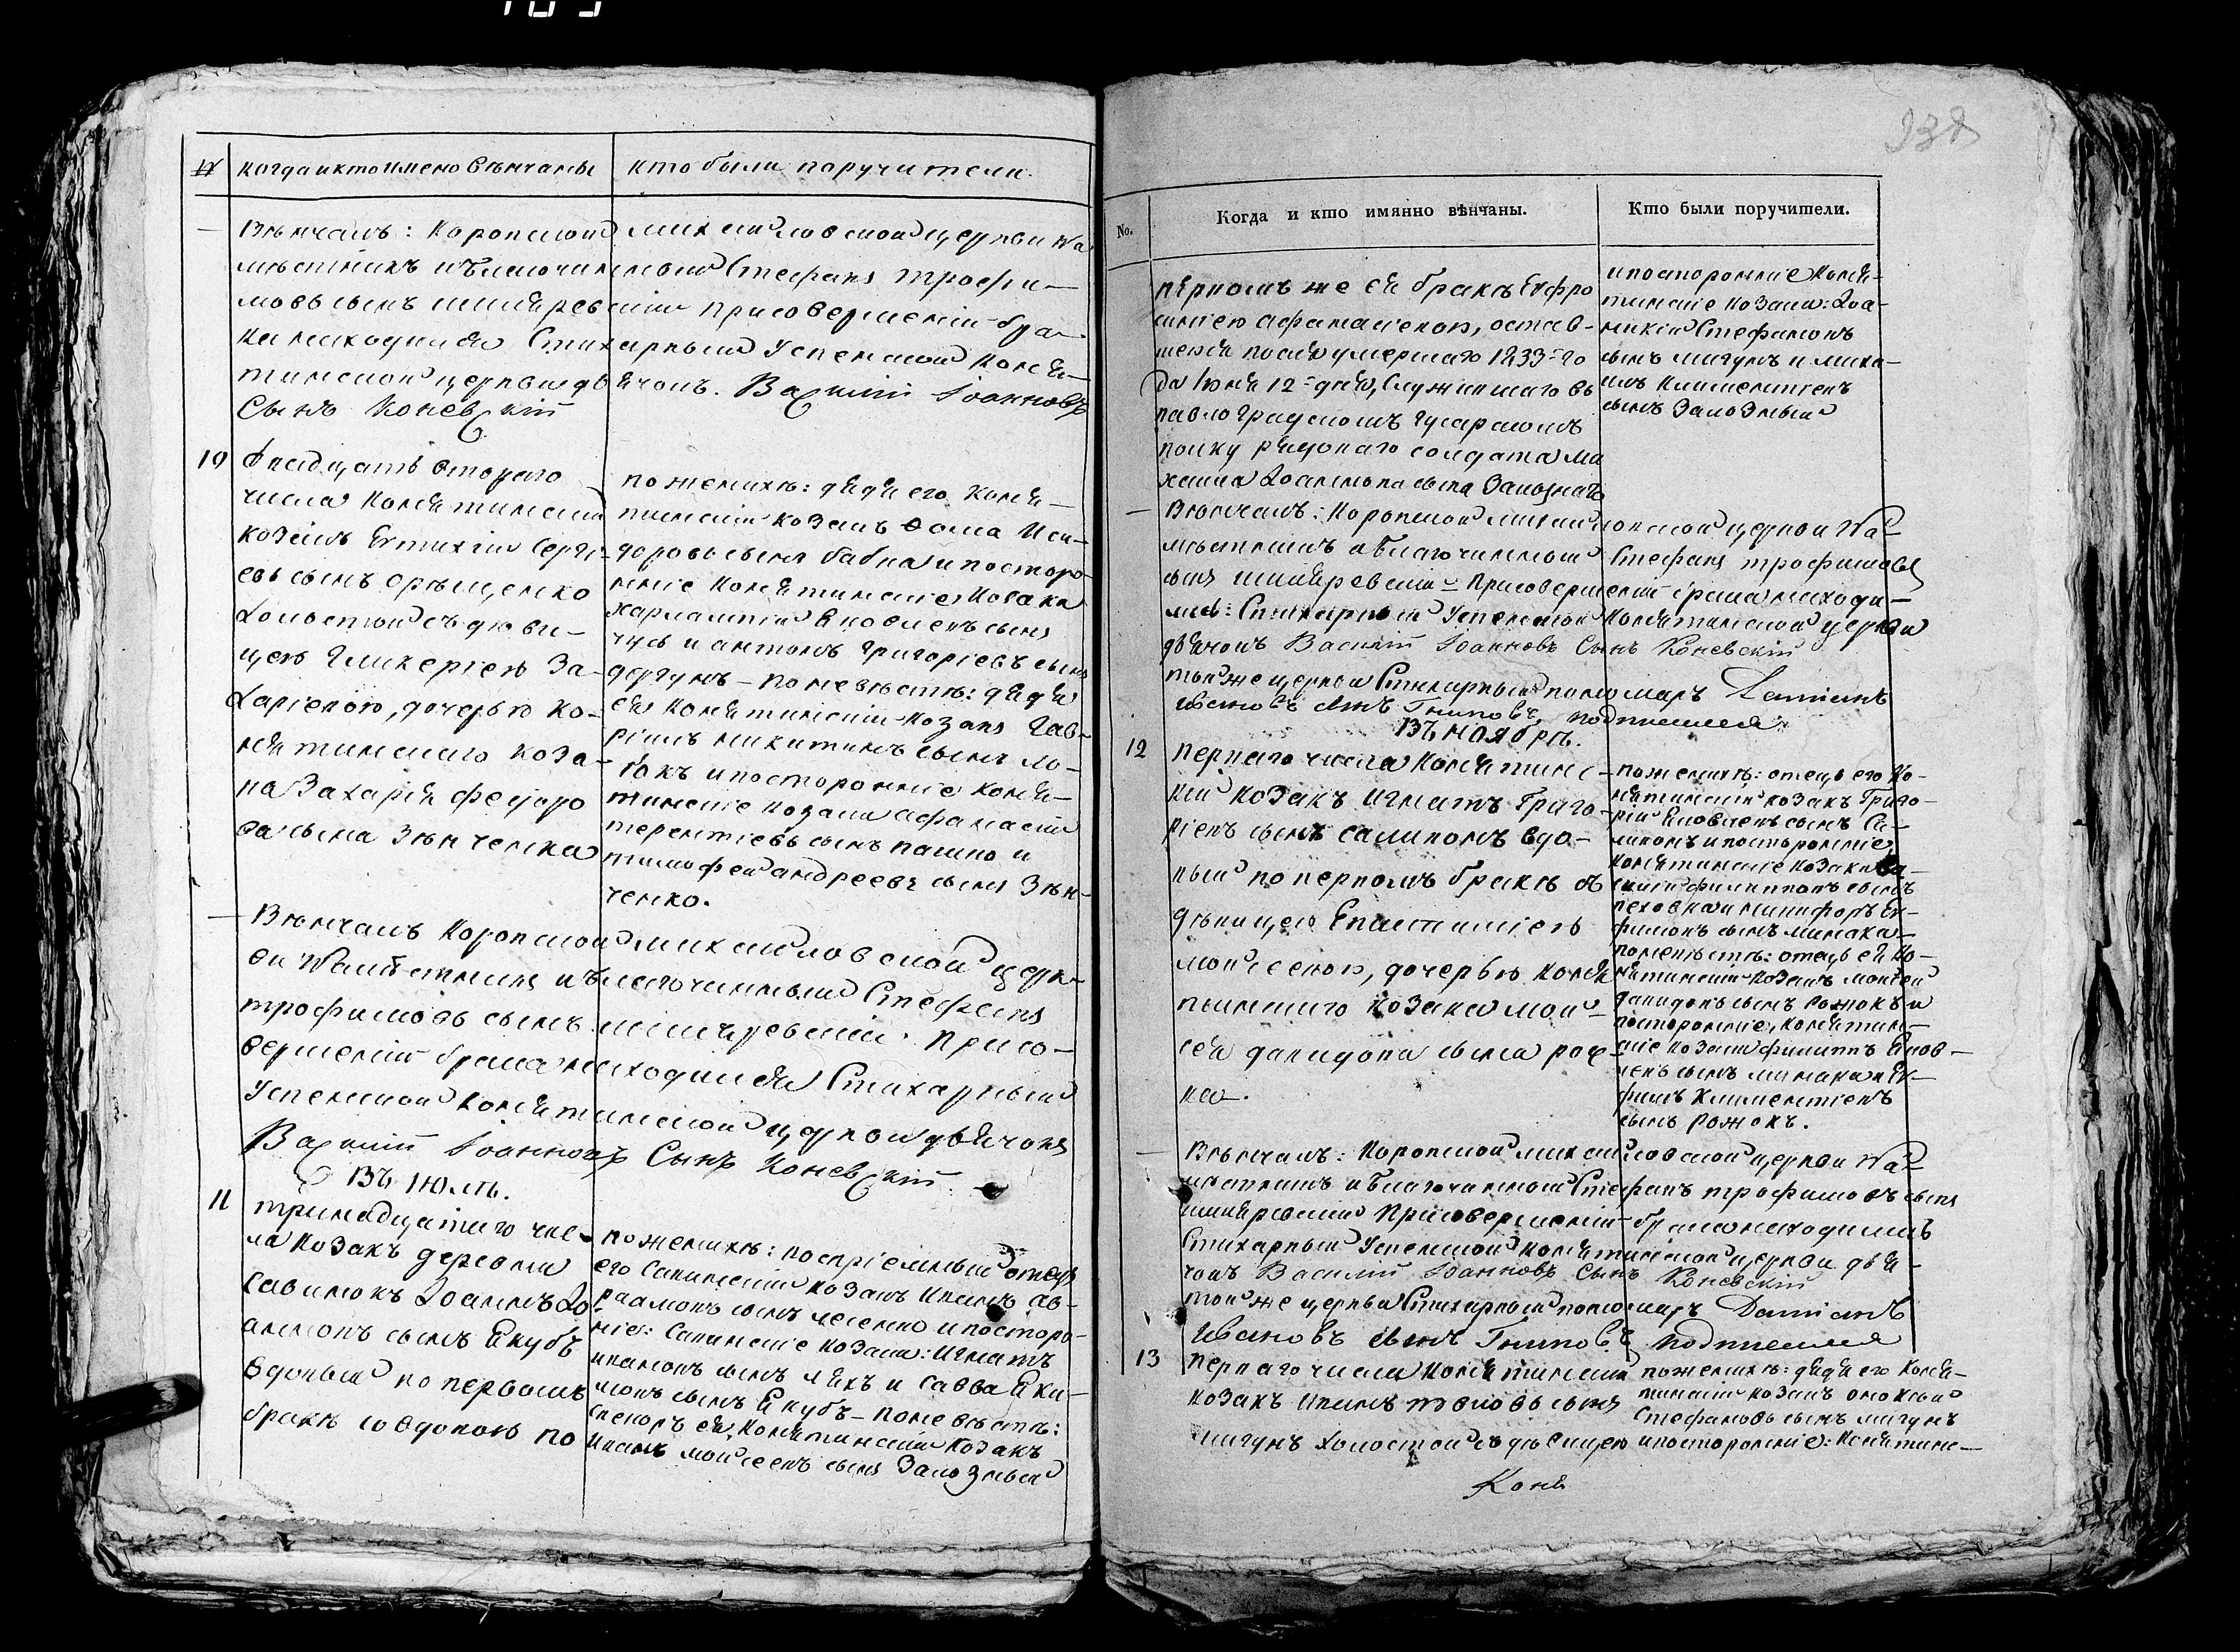 №
когда и кто имено вѣнчаны
кто были поручители.
— Вѣнчалъ: Коропской михайловской церкви На-
мѣстникъ и благочинный Стефанъ трофи-
мовъ сынъ шкляревскій присовершеніи бра-
ка находился Стихарный Успенской коня-
тинской церкви дьячокъ. Василій Іоанновъ
Сынъ Коневскій
10
двадцать втораго
числа конятинскій
козакъ Евтихій Сергі-
евъ сынъ орѣщенко
холостой съ дѣви-
цею Гликеріею За-
харіевою, дочерью ко-
нятинскаго коза-
ка Захарія федоро
ва сына Зѣнченка
по женихѣ: дядя его коня-
тинскій козакъ Ѳома Иси-
доровъ сынъ бабка и посторо-
нніе конятинскіе козаки
харлампій Яковлевъ сынъ
чусь и антонъ григоріевъ сынъ
дергунъ — по невѣстѣ: дядя
ея конятинскій козакъ Гав-
ріилъ никитинъ сынъ ло-
бокъ и посторонніе коня-
тинскіе козаки афанасій
терентіевъ сынъ пашко и
тимофей андреевъ сынъ Зѣн-
ченко.
— Вѣнчалъ Коропской михайловской церк-
ви Намѣстникъ и благочинный Стефанъ
трофимовъ сынъ шкляревскій. Присо-
вершеніи брака находился Стихарный
Успенской конятинской церкви дьячокъ
Василій Іоанновъ Сынъ Коневскій
Въ Іюлѣ.
11
тринадцатаго чис-
ла козакъ деревни
савинокъ Іоаннъ Іо-
анновъ сынъ Якубъ
вдовый по первомъ
бракѣ со вдовою по
по женихѣ: воспріемный отецъ
его Савинскій козакъ Иванъ ав-
раамовъ сынъ лесенко и посторо-
нніе: Савинскіе козаки: Игнатъ
ивановъ сынъ ляхъ и савва Яки-
мовъ сынъ Якубъ — по невѣстѣ:
свекоръ ея, Конятинскій козакъ
Иванъ мойсеевъ сынъ Залозный
No.
Когда и кто имянно вѣнчаны.
Кто были поручители.
первомъ же ея бракѣ Евфро
синіею афанасіевою, остав-
шеюся послѣ умершаго 1833-го
да Іюня 12-дня, Служившаго въ
павлоградскомъ гусарскомъ
полку рядоваго солдата ми
хаила Іоаннова сына Залознаго
и посторонніе Коня-
тинскіе козаки: Іоа-
никій Стефановъ
сынъ мигунъ и миха-
илъ Климентіевъ
сынъ Залозный
— Вѣнчалъ: Коропской михайловской церкви На-
мѣстникъ и благочинный Стефанъ трофимовъ
сынъ шкляревскій — Присовершеніи брака находи-
лись: Стихарный Успенской Конятинской церкви
дьячокъ Василій Іоанновъ Сынъ Коневскій
той же церкви Стихарный пономарь Даміанъ
Ивановъ сынъ подписался.
Въ ноябрѣ.
12
перваго числа Конятинс-
кій козакъ Игнатъ Григо-
ріевъ сынъ саликонъ вдо-
вый по первомъ бракѣ съ
дѣвицею Евстиміею
мойсеевою, дочерью коня
тинскаго козака мой-
сея давидова сына рож-
ка.
по женихѣ: отецъ его Ко-
нятинскій козакъ Григо-
рій Яковлевъ сынъ Са-
ликонъ и посторонніе
конятинскіе козаки Ва-
силій филиповъ сынъ
и никифоръ Ев-
фимовъ сынъ минака —
по невѣстѣ: отецъ ея Ко-
нятинскій козакъ мойсей
давидовъ сынъ рожокъ и
посторонніе, конятин-
скіе козаки филиппъ Яков-
левъ сынъ минака и Ев-
фимъ Климентіевъ
сынъ рожокъ.
— Вѣнчалъ: Коропской михайловской церкви На-
мѣстникъ и благочинный Стефанъ трофимовъ сынъ
шкляревскій Присовершеніи брака находились
Стихарный Успенской конятинской церкви дья-
чокъ Василій Іоанновъ Сынъ Коневскій
той же церкви Стихарный пономарь Даміанъ
Ивановъ сынъ подписался
13
перваго числа Конятинскій
козакъ Иванъ сынъ
мигунъ холостой съ дѣвицею
по женихѣ: дядя его коня-
тинскій козакъ
Стефановъ сынъ мигунъ
и посторонніе: Конятинс-